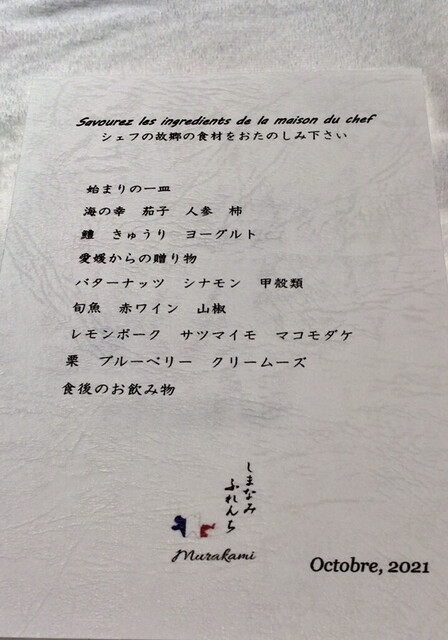 Savourez les ingredients de la maison du chef
シェフの故郷の食材をおたのしみ下さい
始まりの一皿
海の幸　茄子　人参　柿
鱧　きゅうり　ヨーグルト
愛媛からの贈り物
バターナッツ　シナモン　甲殻類
旬魚　赤ワイン　山椒
レモンポーク　サツマイモ　マコモダケ
栗　ブルーベリー　クリームーズ
食後のお飲み物
しまなみ
ふれんち
Murakami
Octobre, 2021